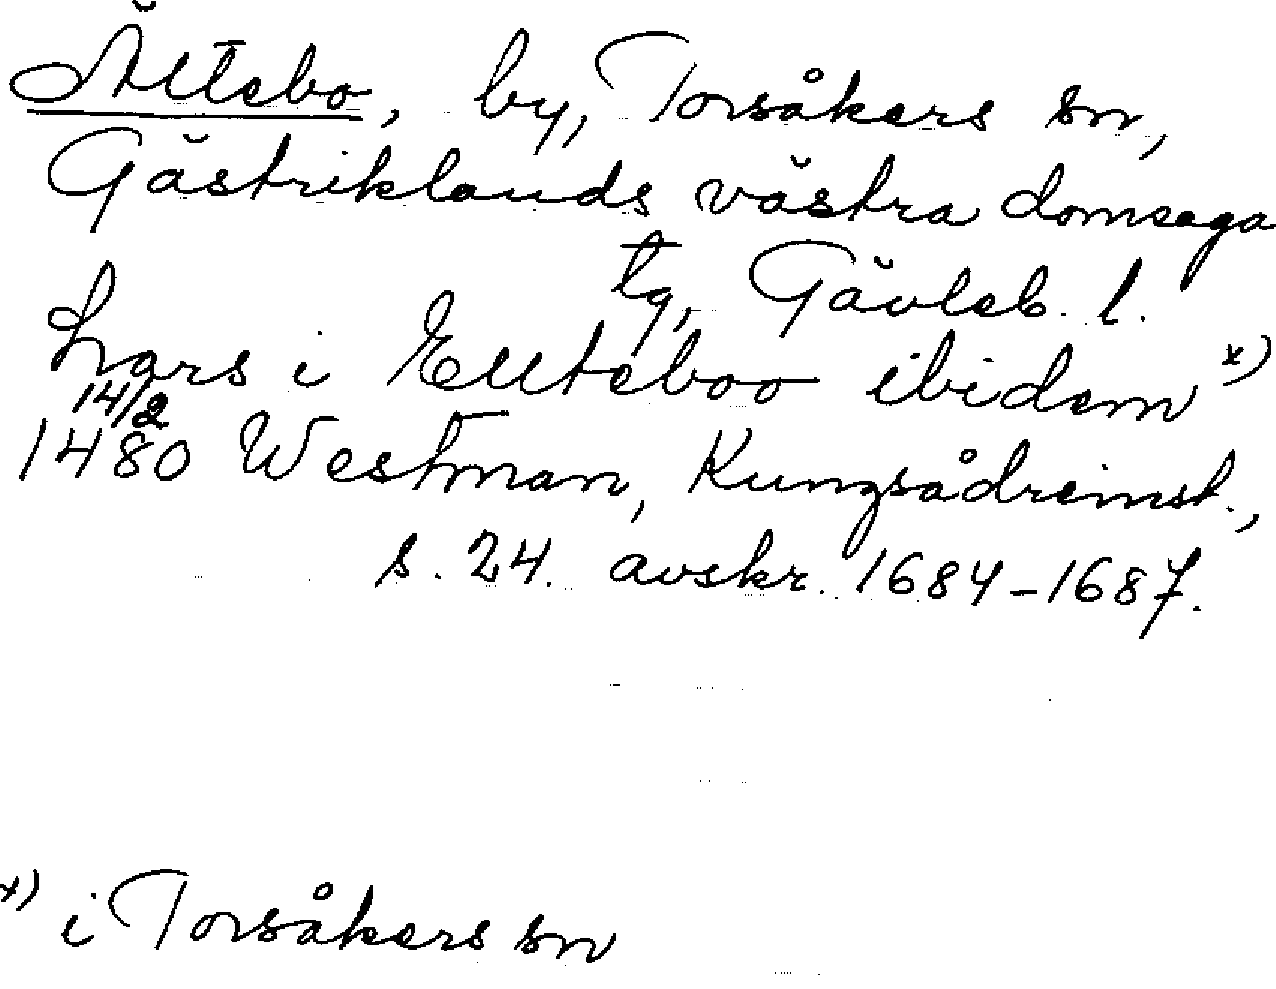 Älltebo, by, Torsåkers sn,
Gästriklands västra domsaga
tg, Gävleb. l.
Lars i Ellteboo ibidem x)
14/2
1480 Westman, Kungsådreinst.,
s. 24. avskr. 1684-1687.
x) i Torsåkers sn